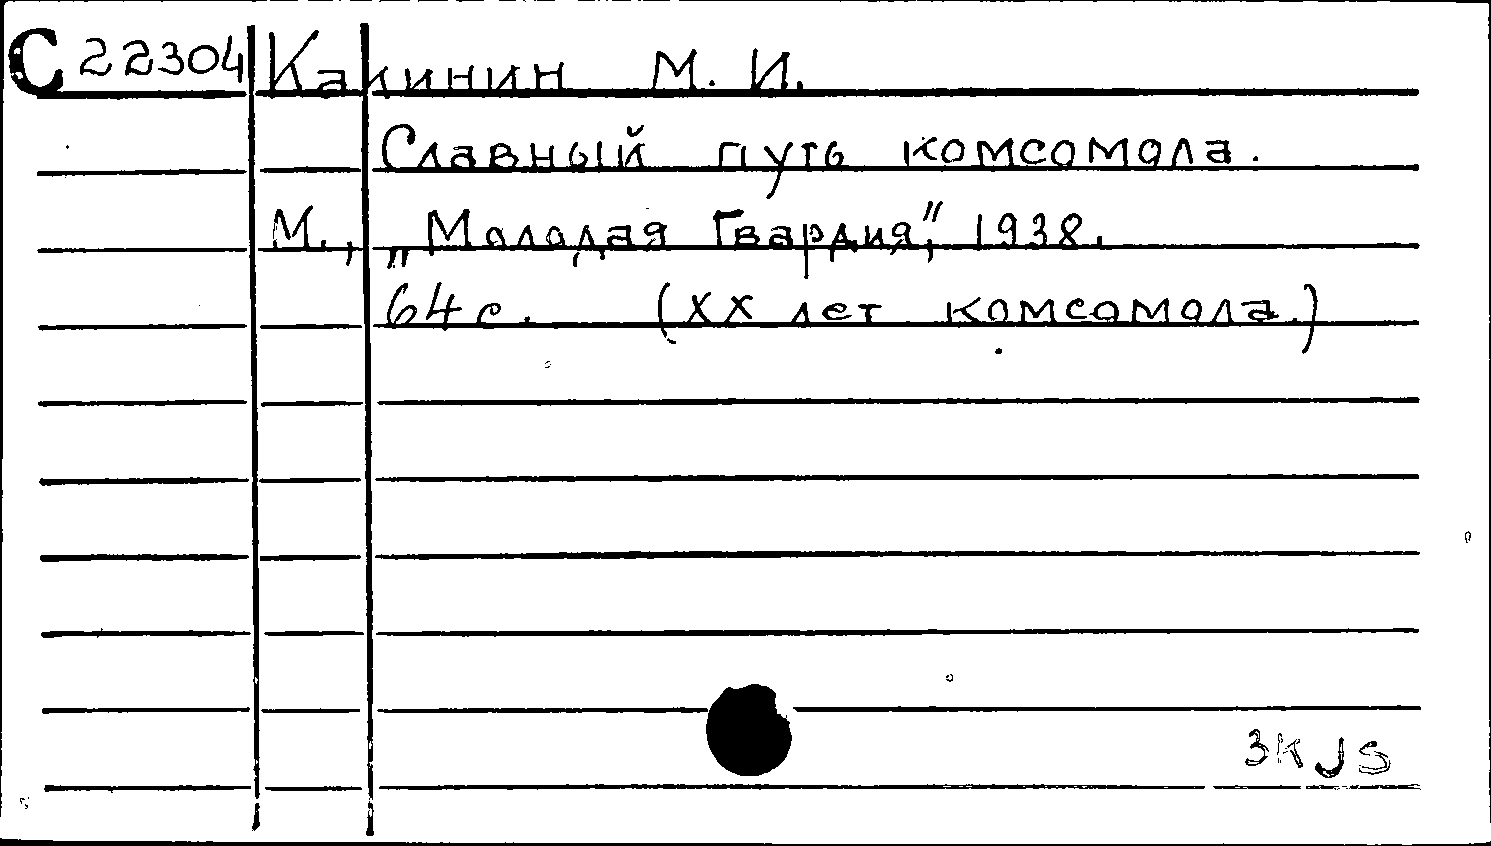 С 22304 Калинин М. И.
Славный путь комсомола.
М., „Молодая Гвардия", 1938.
64 с. (XX лет комсомола.)
3К J S